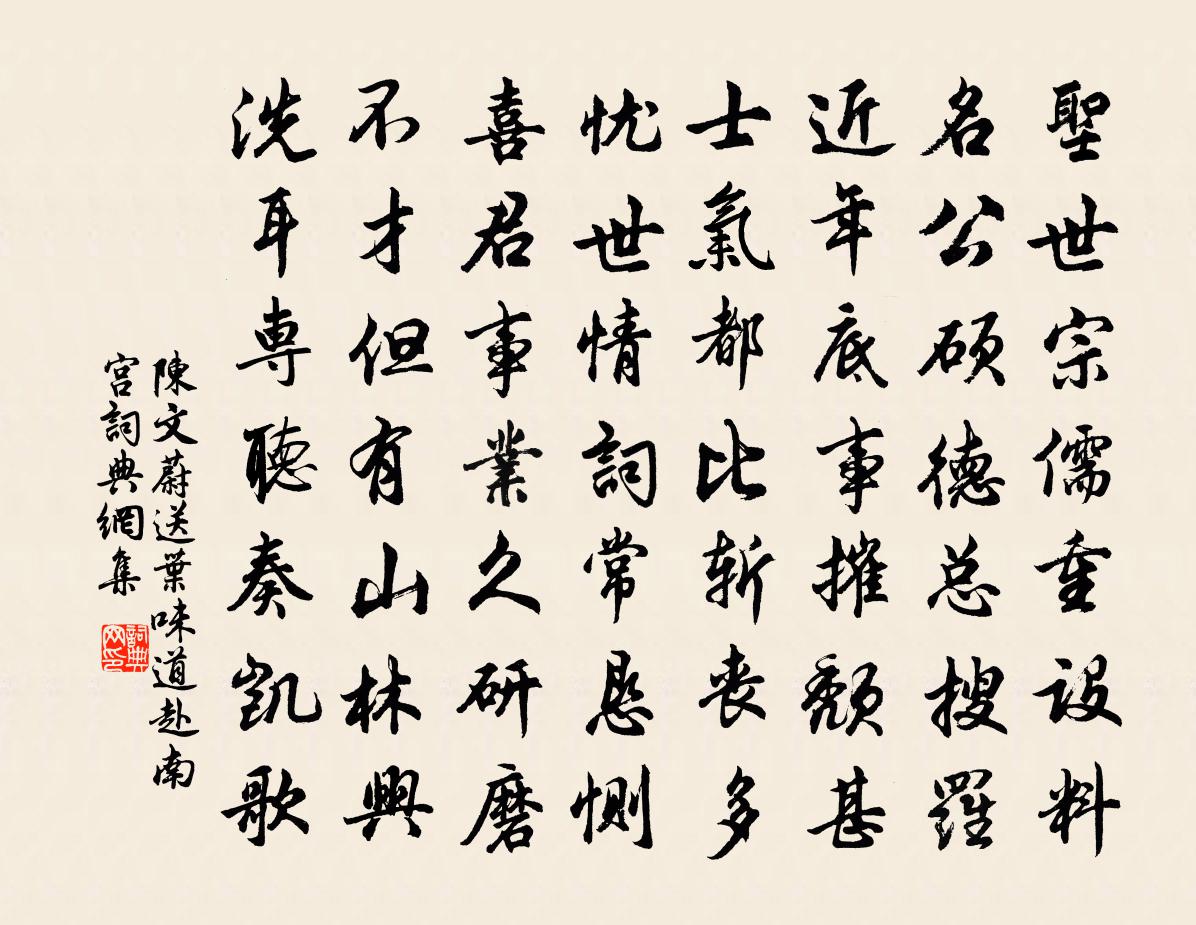 聖世宗儒重設料
名公碩德总搜羅
近年底事摧頹甚
士氣都比斬丧多
忧世情詞常恳惻
喜君事業久研磨
不才但有山林興
洗耳専聽奏凱歌
陳文蔚送葉味道赴南
宮詞典網集
詞典
网印